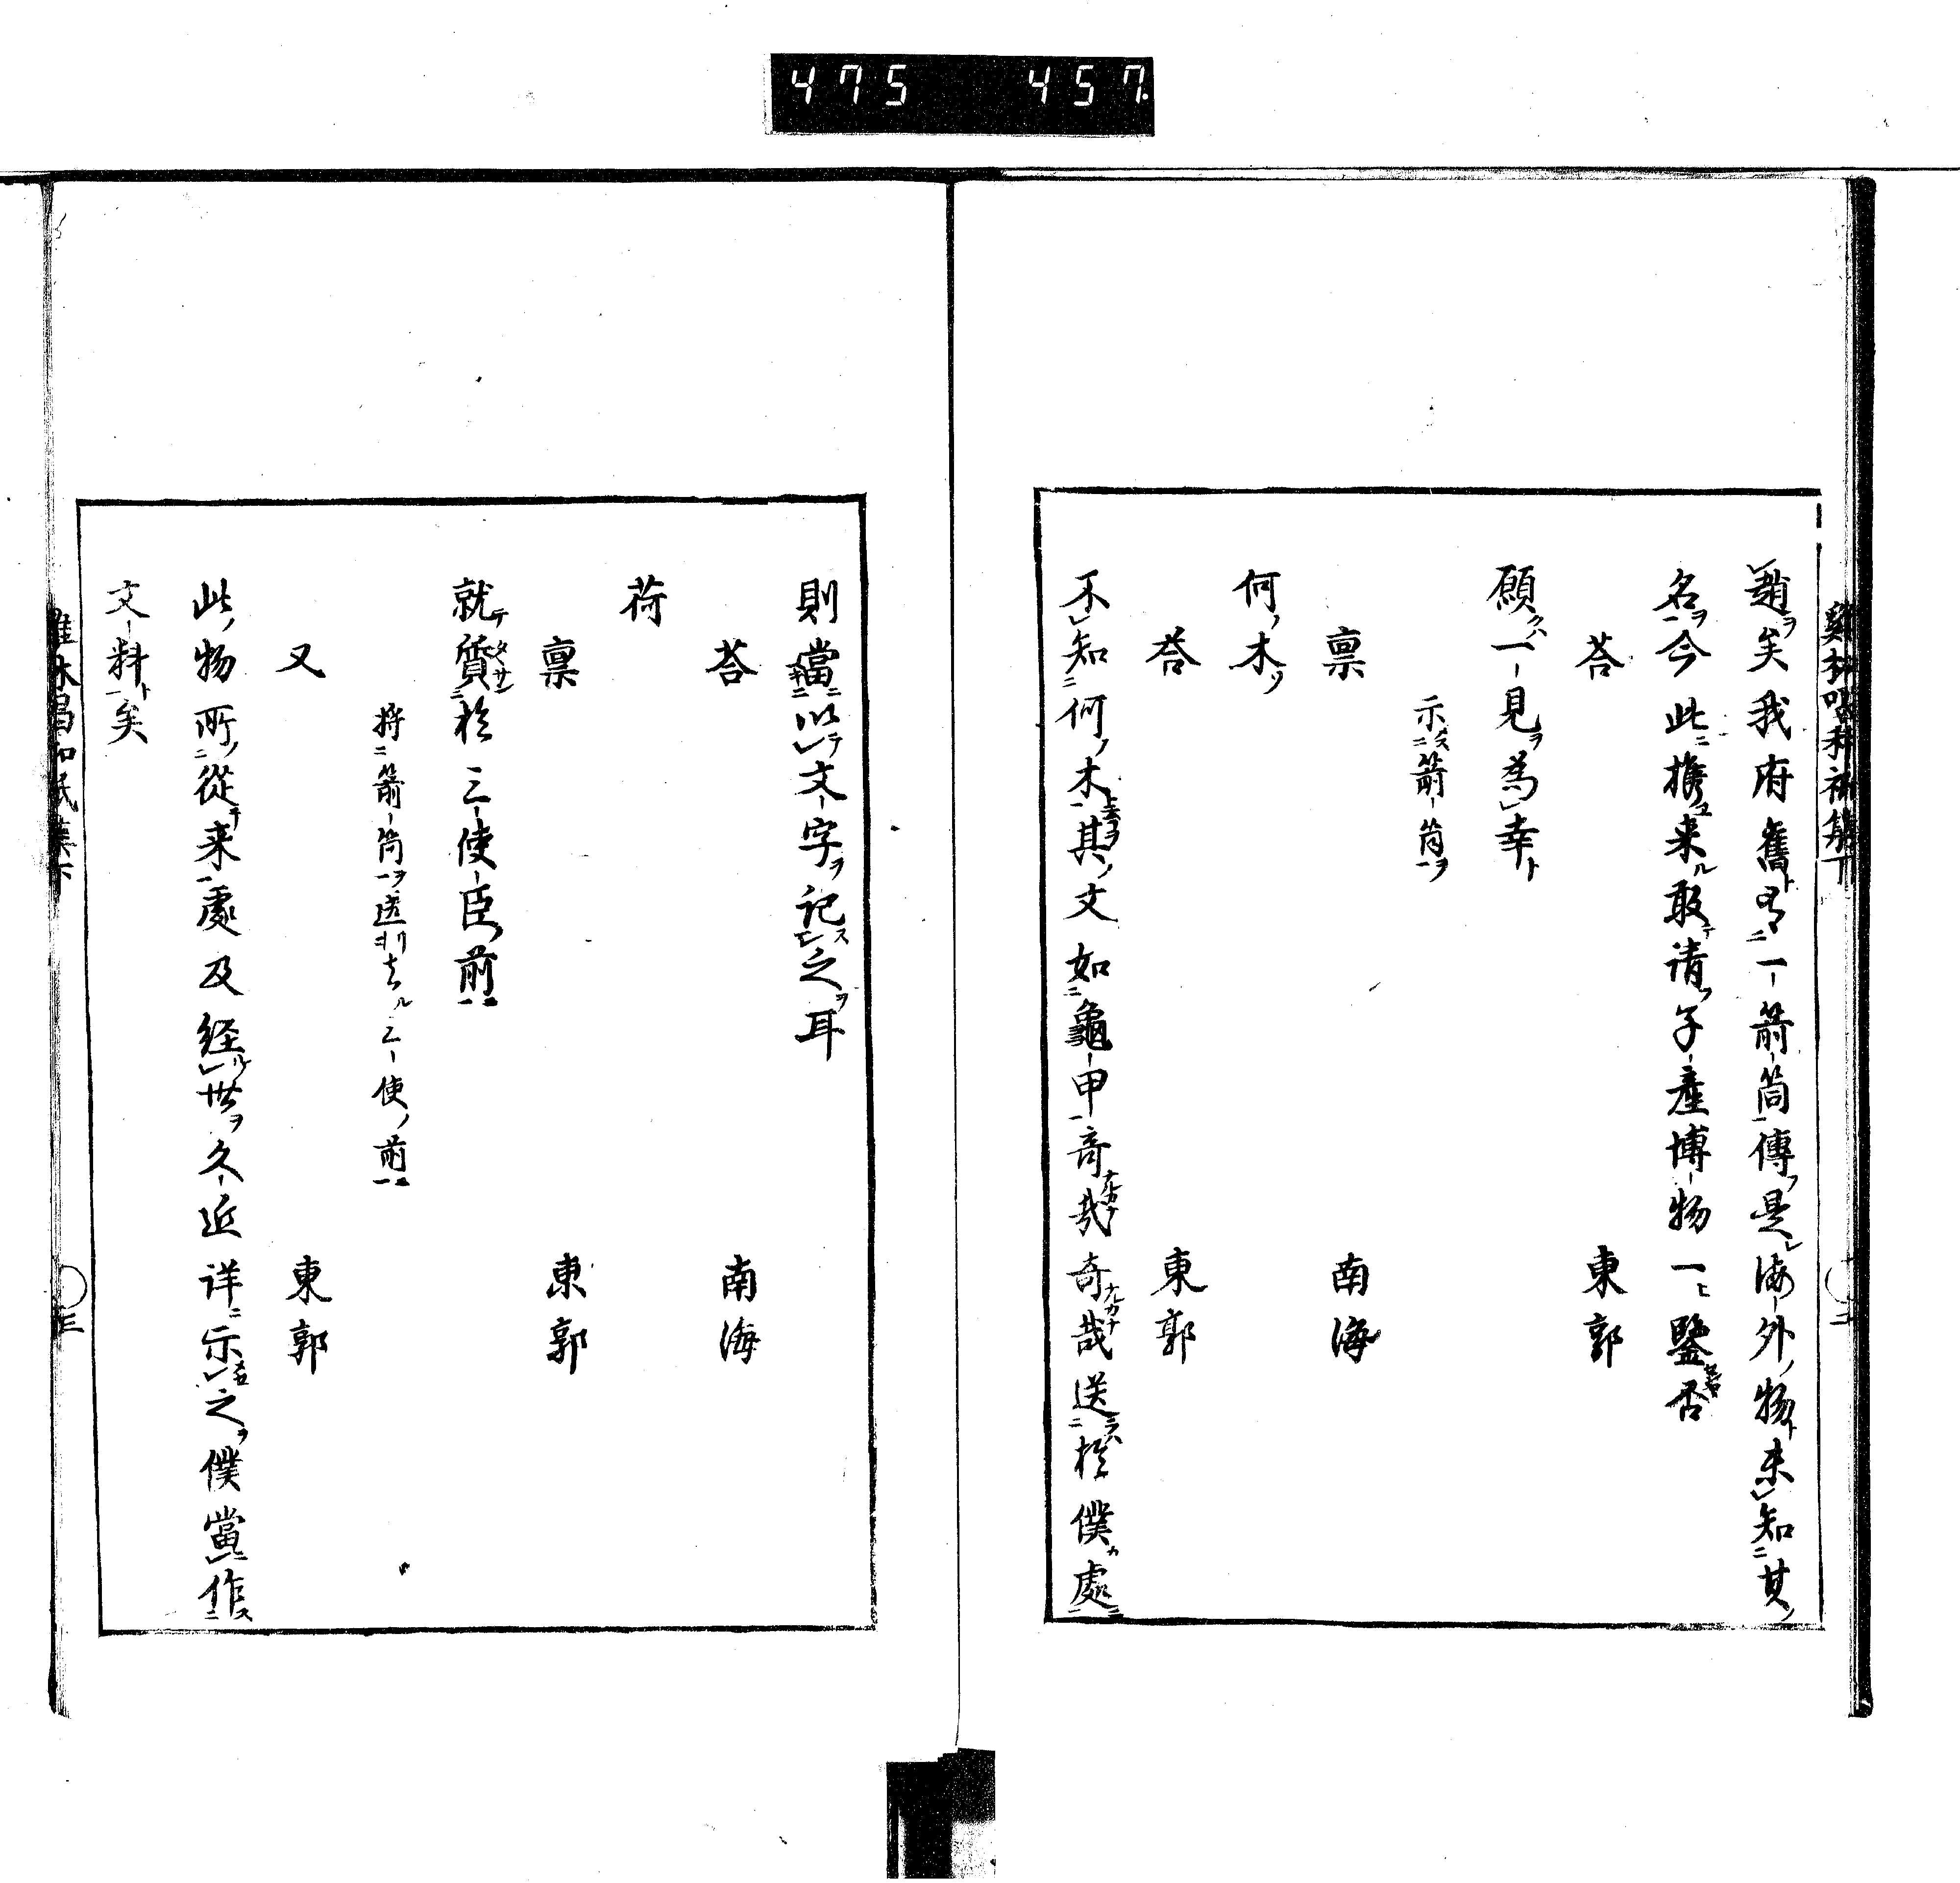 475 457.
趙矣我府舊有一箭筒傳是海外物未知其
名今此携来敢请子產博物一鑒否
荅 東郭
願一見為幸
示箭筒
禀 南海
何木
荅 東郭
不知何木其文如龜甲奇哉奇哉送於僕處
則當以文字記之耳
荅 南海
荷
禀 東郭
就質於三使臣前
将箭筒送去三使前
又 東郭
此物所從来處及経世久近详示之僕當作
文料矣